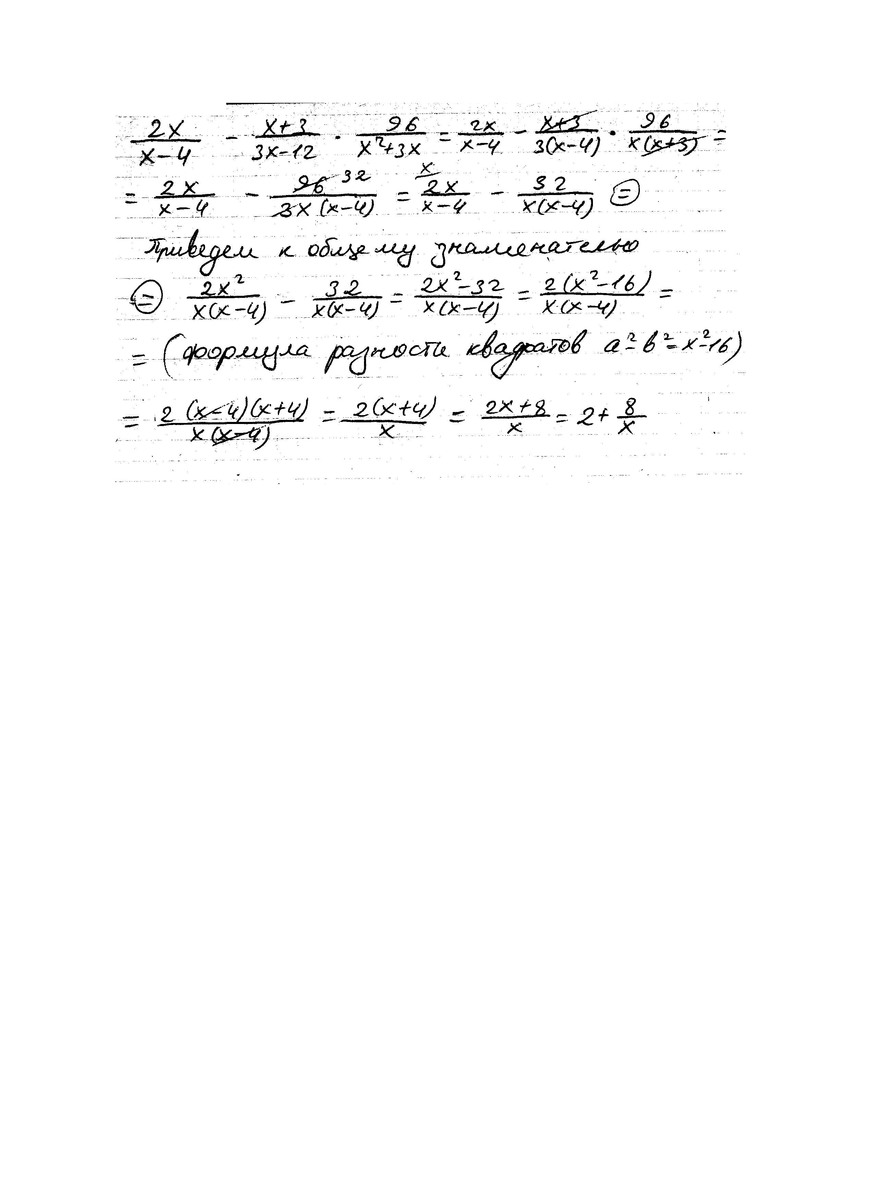 2x/(x-4) - (x+3)/(3x-12) · 96/(x²+3x) = 2x/(x-4) - (x+3)/(3(x-4)) · 96/(x(x+3)) =
= 2x/(x-4) - 96 32/(3x(x-4)) = x 2x/(x-4) - 32/(x(x-4)) =
Приведем к общему знаменателю
= 2x²/(x(x-4)) - 32/(x(x-4)) = (2x²-32)/(x(x-4)) = 2(x²-16)/(x(x-4)) =
= (формула разности квадратов a²-b²=x²-16)
= 2(x-4)(x+4)/(x(x-4)) = 2(x+4)/x = (2x+8)/x = 2+8/x